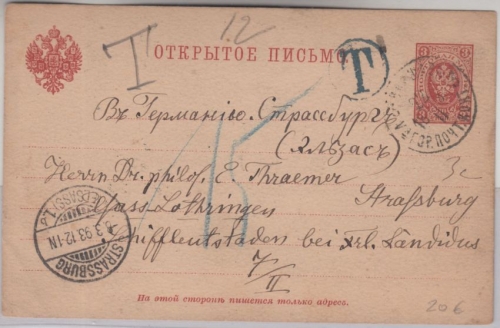 12
T
ОТКРЫТОЕ ПИСЬМО.
T
3
Въ Германію. Страссбургъ
(Эльзасъ)
15
3c
Herrn Dr. philos. E. Thraemer
Strassburg
Elsass Lothringen
Schifflentstaden bei Frl. Ländidus
7/II
STRASSBURG
3.93.12-1N
На этой сторонѣ пишется только адресъ.
20€